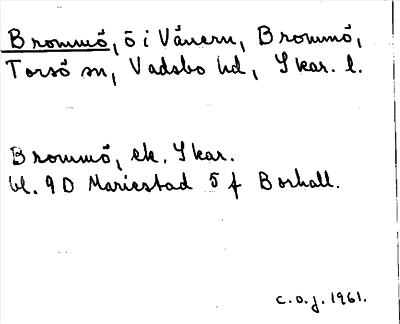 Brommö, ö i Vänern, Brommö,
Torsö sn, Vadsbo hd, Skar. l.
Brommö, ek. Skar.
bl. 9D Mariestad 5 f Borhall.
c.o.j. 1961.